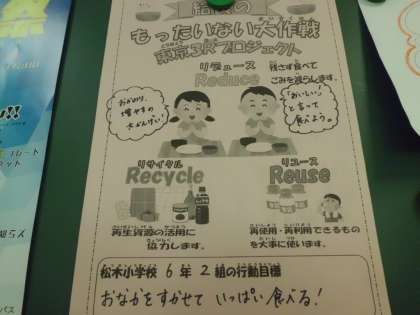 給食の
もったいない大作戦
東京3Rプロジェクト
リデュース
Reduce
残さず食べて
ごみを減らします。
おかわり、
増やすの
大かんげい!
「おいしい!」
と言って
食べよう。
リサイクル
Recycle
再生資源の活用に
協力します。
リユース
Reuse
再使用・再利用できるもの
を大事に使います。
松木小学校 6年 2組の行動目標
おなかをすかせて いっぱい食べる!